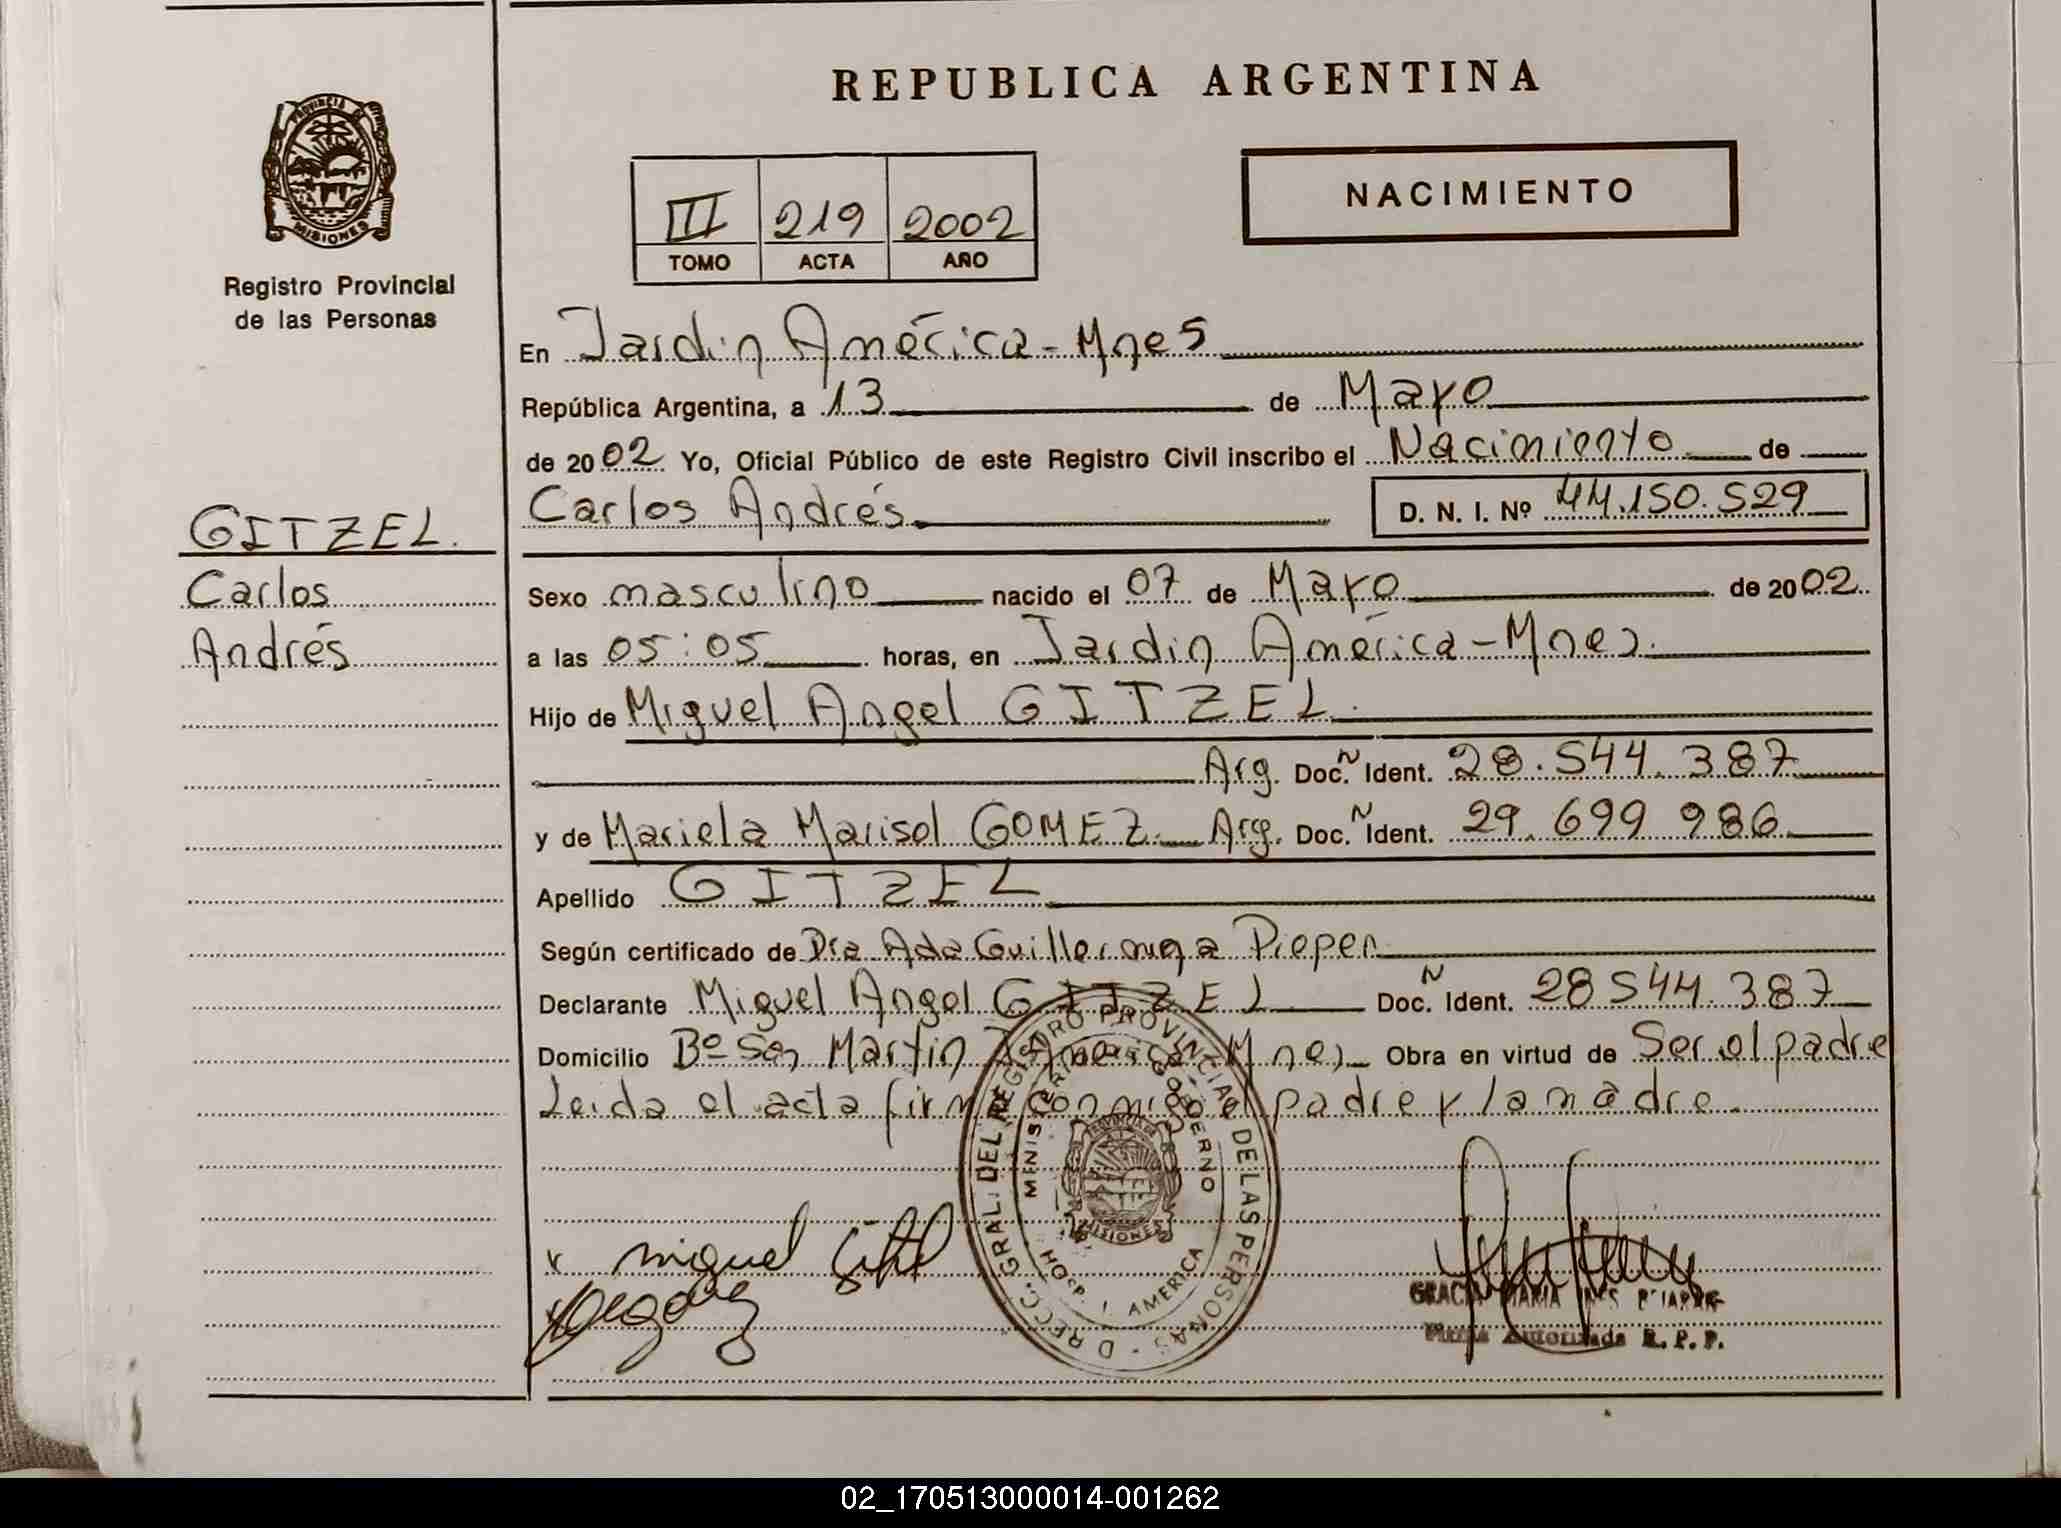 REPUBLICA ARGENTINA
PROVINCIA DE
MISIONES
Registro Provincial
de las Personas
NACIMIENTO
III 219 2002
TOMO ACTA AÑO
En Jardin América - Mnes
República Argentina, a 13 de Mayo
de 2002 Yo, Oficial Público de este Registro Civil inscribo el Nacimiento de
Carlos Andrés
D. N. I. Nº 44.150.529
GITZEL.
Carlos
Andrés
Sexo masculino nacido el 07 de Mayo de 2002
a las 05:05 horas, en Jardin América - Mnes.
Hijo de Miguel Angel GITZEL.
Arg. Doc. Ñ Ident. 28.544.387
y de Mariela Marisol GOMEZ. Arg. Doc. Ñ Ident. 29.699 986
Apellido GITZEL
Según certificado de Dra Ada Guillermina Pieper
Declarante Miguel Angel GITZEL Doc. Ñ Ident. 28544.387
Domicilio Bº San Martin J. América - Mnes Obra en virtud de Ser el padre
Leida el acta firma conmigo el padre y la madre.
DIRECC. GRAL. DEL REGISTRO PROVINCIAL DE LAS PERSONAS
GOBIERNO
MISIONES
HOSP. J. AMERICA
miguel Gitzel
MARIA
Firma Autorizada R. P. P.
02_170513000014-001262